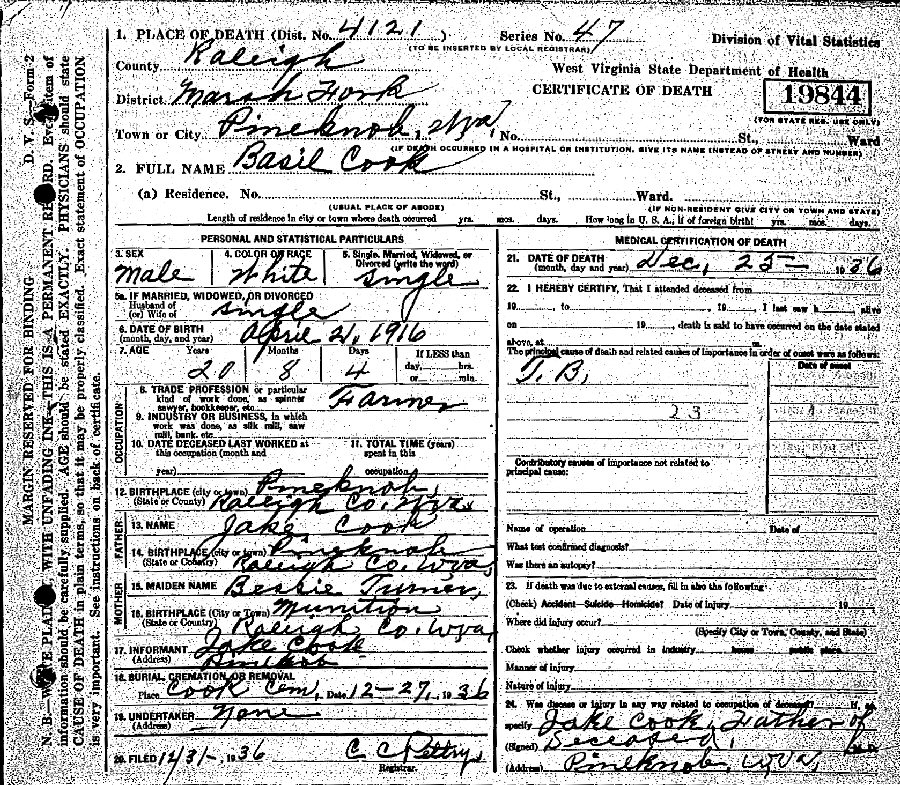 1. PLACE OF DEATH (Dist. No. 4121 ) Series No. 47 Division of Vital Statistics
(TO BE INSERTED BY LOCAL REGISTRAR)
County Raleigh West Virginia State Department of Health
District Marsh Fork CERTIFICATE OF DEATH 19844
(FOR STATE REG. USE ONLY)
Town or City Pineknob, W.Va, No. St., Ward
(IF DEATH OCCURRED IN A HOSPITAL OR INSTITUTION, GIVE ITS NAME INSTEAD OF STREET AND NUMBER)
2. FULL NAME Basil Cook
(a) Residence. No. St., Ward.
(USUAL PLACE OF ABODE) (IF NON-RESIDENT GIVE CITY OR TOWN AND STATE)
Length of residence in city or town where death occurred yrs. mos. days. How long in U. S. A., if of foreign birth? yrs. mos. days.
PERSONAL AND STATISTICAL PARTICULARS
3. SEX 4. COLOR OR RACE 5. Single, Married, Widowed, or Divorced (write the word)
Male White Single
5a. IF MARRIED, WIDOWED, OR DIVORCED
Husband of
(or) Wife of Single
6. DATE OF BIRTH
(month, day, and year) April 21, 1916
7. AGE Years Months Days If LESS than
20 8 4 day, hrs.
or min.
OCCUPATION
8. TRADE PROFESSION or particular
kind of work done, as spinner
sawyer, bookkeeper, etc. Farmer
9. INDUSTRY OR BUSINESS, in which
work was done, as silk mill, saw
mill, bank, etc.
10. DATE DECEASED LAST WORKED at
this occupation (month and
year)
11. TOTAL TIME (years)
spent in this
occupation
12. BIRTHPLACE (city or town) Pineknob,
(State or County) Raleigh Co. W.Va.
FATHER
13. NAME Jake Cook
14. BIRTHPLACE (city or town) Pineknob
(State or Country) Raleigh Co. W.Va,
MOTHER
15. MAIDEN NAME Bessie Turner,
16. BIRTHPLACE (City or Town) Munition
(State or Country) Raleigh Co. W.Va,
17. INFORMANT Jake Cook
(Address) Pineknob
18. BURIAL, CREMATION OR REMOVAL
Place Cook Cem, Date 12-27, 1936
19. UNDERTAKER None
(Address)
20. FILED 12/31-, 1936 C. C. Pettry
Registrar.
MEDICAL CERTIFICATION OF DEATH
21. DATE OF DEATH
(month, day and year) Dec, 25- 1936
22. I HEREBY CERTIFY, That I attended deceased from
19 , to , 19 , I last saw h alive
on 19 , death is said to have occurred on the date stated
above, at m.
The principal cause of death and related causes of importance in order of onset were as follows:
Date of onset
T. B,
23
Contributory causes of importance not related to
principal cause:
Name of operation Date of
What test confirmed diagnosis?
Was there an autopsy?
23. If death was due to external causes, fill in also the following:
(Check) Accident—Suicide—Homicide? Date of injury 19
Where did injury occur?
(Specify City or Town, County, and State)
Check whether injury occurred in industry home public place
Manner of injury
Nature of injury
24. Was disease or injury in any way related to occupation of deceased? If so
specify Jake Cook, Father of
(Signed) Deceased,
(Address) Pineknob, W.Va,
MARGIN RESERVED FOR BINDING D. V. S.—Form-2
N. B.—WRITE PLAINLY, WITH UNFADING INK—THIS IS A PERMANENT RECORD. Every item of
information should be carefully supplied. AGE should be stated EXACTLY. PHYSICIANS should state
CAUSE OF DEATH in plain terms, so that it may be properly classified. Exact statement of OCCUPATION
is very important. See instructions on back of certificate.